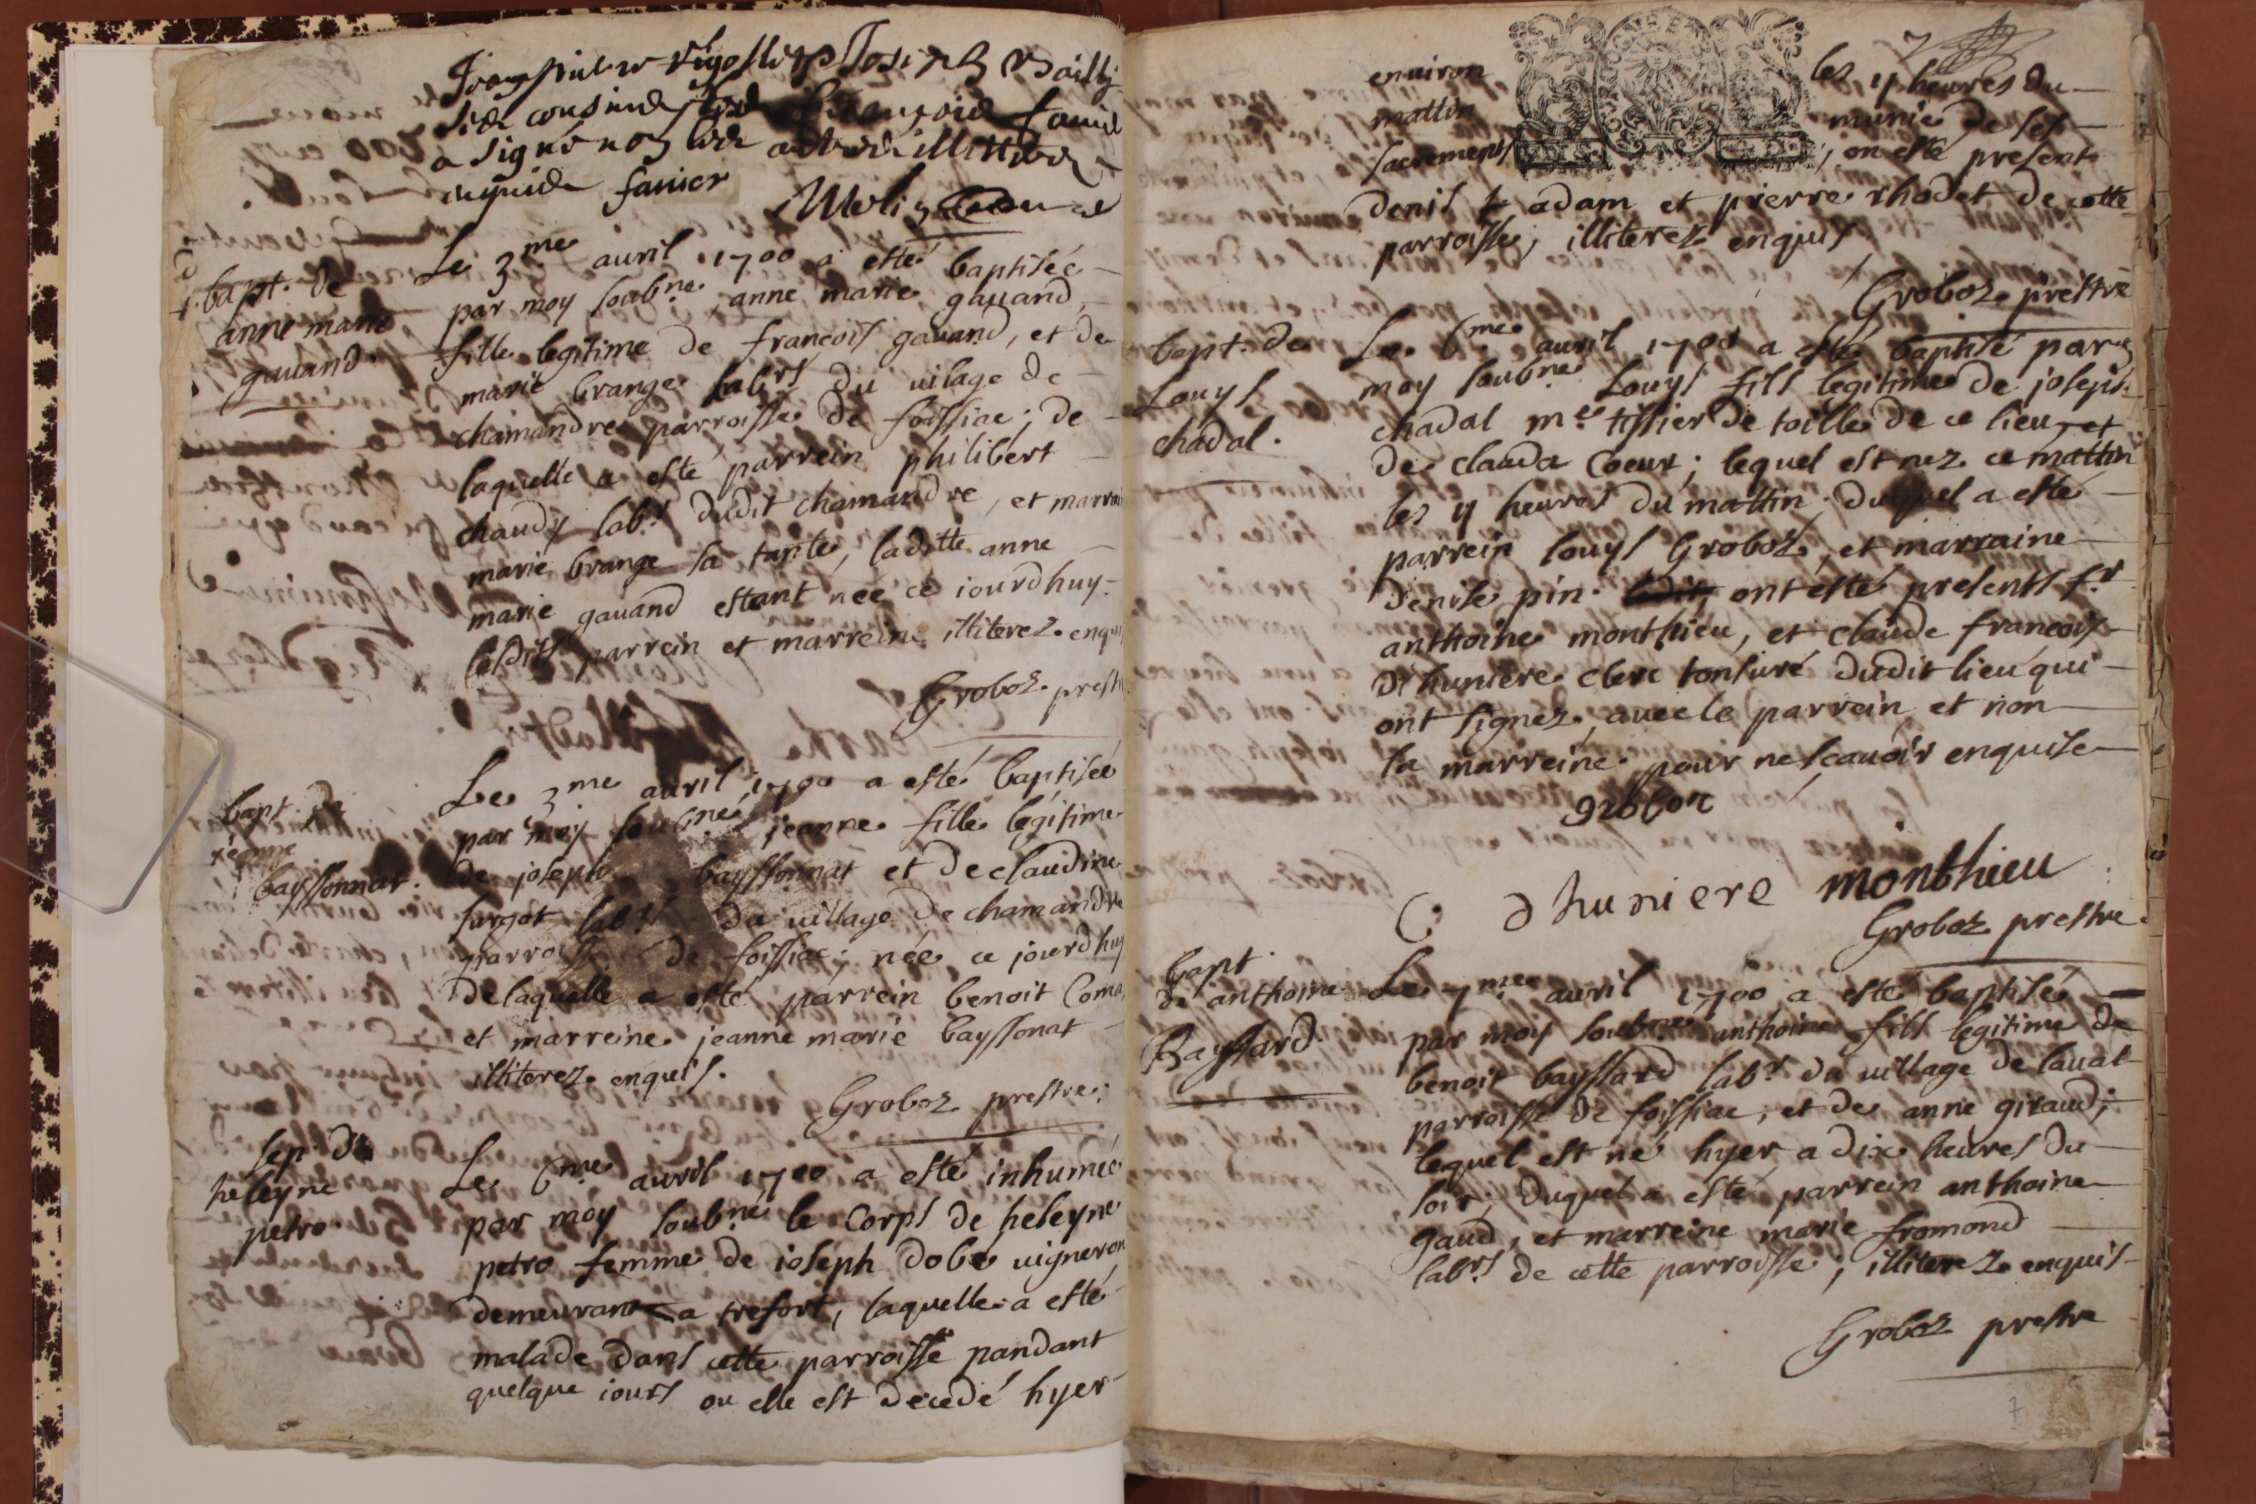 Joseph Bailly
a signé non
enquis favier
bapt. de
anne marie
gauand
Le 3me auril 1700 a esté baptisée
par moy soubne anne marie gauand,
fille legitime de francois gauand, et de
marie brange labrs du uilage de
chamandre parroisse de foissiac; de
laquelle a esté parrein philibert
chaudy labr dudit chamandre, et marrai
marie brange sa tante, laditte anne
marie gauand estant née ce iourdhuy
lesdits parrein et marreine illiterez enquis
Groboz prestr
bapt. de
jeanne
bayssonnat.
Le 3me auril 1700 a esté baptisée
par moy soubné jeanne fille legitime
de joseph bayssonnat et de claudine
surgot labrs du uillage de chamandre
parroisse de foissiac; née ce jourdhuy
de laquelle a esté parrein benoit
et marreine jeanne marie bayssonat
illiterez enquis.
Groboz prestre.
sep. de
heleyne
petro
Le 6me auril 1700 a esté inhumée
par moy soubné le corps de heleyne
petro femme de ioseph dobe uigneron
demeurant a trefort, laquelle a esté
malade dans cette parroisse pandant
quelque iours ou elle est decedé hyer
7
enuiron les 11 heures du
mattin munie de ses
sacrements, on esté present
denis adam et pierre rhodet de cette
parroisse; illiterez enquis
Groboz prestre
bapt. de
Louys
chadal.
Le 6me auril 1700 a esté baptisé par
moy soubne Louys fils legitime de joseph
chadal me tissier de toille de ce lieu, et
de clauda Coeur; lequel est nez ce mattin
les 11 heures du mattin; duquel a esté
parrein louys Groboz, et marraine
denise pin. ont esté presents sr
anthoine monthieu, et claude francois
dhuniere clerc tonsuré dudit lieu qui
ont signez, auec le parrein et non
la marreine pour ne scauoir enquise
groboz
C dhuniere monthieu
Groboz prestre
bapt.
de anthoine
Bayssard
Le 7me auril 1700 a esté baptisé
par moy soubné anthoine fils legitime de
benoit bayssard labr du uillage de laual
parroisse de foissiac, et de anne giraud;
lequel est né hyer a dix heures du
soir; duquel a esté parrein anthoine
gaud, et marreine marie fromond
labrs de cette parroisse; illiterez enquis
Groboz prestre
7